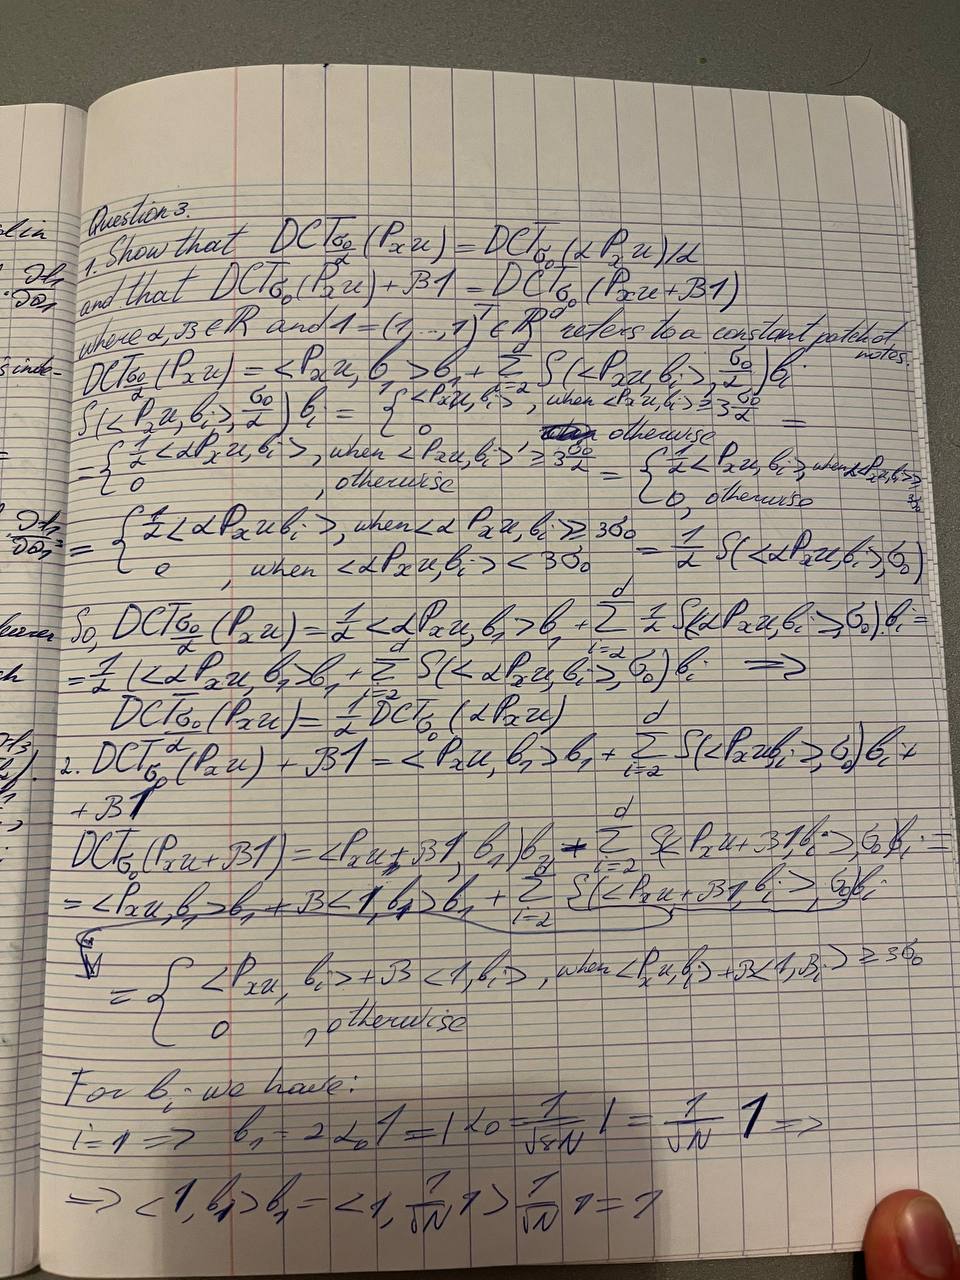 Question 3.
1. Show that DCT_{σ₀/α}(P_x u) = DCT_{σ₀}(αP_x u)/α
and that DCT_{σ₀}(P_x u) + B1 = DCT_{σ₀}(P_x u + B1)
where α, B ∈ ℝ and 1 = (1,...,1)^T ∈ ℝ^d refers to a constant patch of notes.
DCT_{σ₀/α}(P_x u) = <P_x u, b₁>b₁ + Σ_{i=2}^{d} S(<P_x u, b_i>, σ₀/α) b_i
S(<P_x u, b_i>, σ₀/α) b_i = { <P_x u, b_i>, when <P_x u, b_i> ≥ 3σ₀/α ; 0 otherwise =
= { 1/α <αP_x u, b_i>, when <P_x u, b_i> ≥ 3σ₀/α ; 0, otherwise = { 1/α <P_x u, b_i>, when α<P_x u, b_i> ≥ 3σ₀ ; 0, otherwise
= { 1/α <αP_x u b_i>, when <αP_x u, b_i> ≥ 3σ₀ ; 0, when <αP_x u, b_i> < 3σ₀ = 1/α S(<αP_x u, b_i>, σ₀)
So, DCT_{σ₀/α}(P_x u) = 1/α <αP_x u, b₁>b₁ + Σ_{i=2}^{d} 1/α S(<αP_x u, b_i>, σ₀) b_i =
= 1/α (<αP_x u, b₁>b₁ + Σ_{i=2}^{d} S(<αP_x u, b_i>, σ₀) b_i ⟹
DCT_{σ₀/α}(P_x u) = 1/α DCT_{σ₀}(αP_x u)
2. DCT_{σ₀}(P_x u) + B1 = <P_x u, b₁>b₁ + Σ_{i=2}^{d} S(<P_x u b_i>, σ₀) b_i +
+ B1
DCT_{σ₀}(P_x u + B1) = <P_x u + B1, b₁)b₁ + Σ_{i=2}^{d} S(<P_x u + B1, b_i>, σ₀) b_i =
= <P_x u, b₁>b₁ + B<1, b₁>b₁ + Σ_{i=2}^{d} S(<P_x u + B1, b_i>, σ₀) b_i
= { <P_x u, b_i> + B<1, b_i>, when <P_x u, b_i> + B<1, B_i> ≥ 3σ₀
0, otherwise
For b_i we have:
i=1 => b₁ = 2α₀1 = |α₀ = 1/√8N| = 1/√N 1 =>
=> <1, b₁>b₁ = <1, 1/√N 1> 1/√N 1 = 1